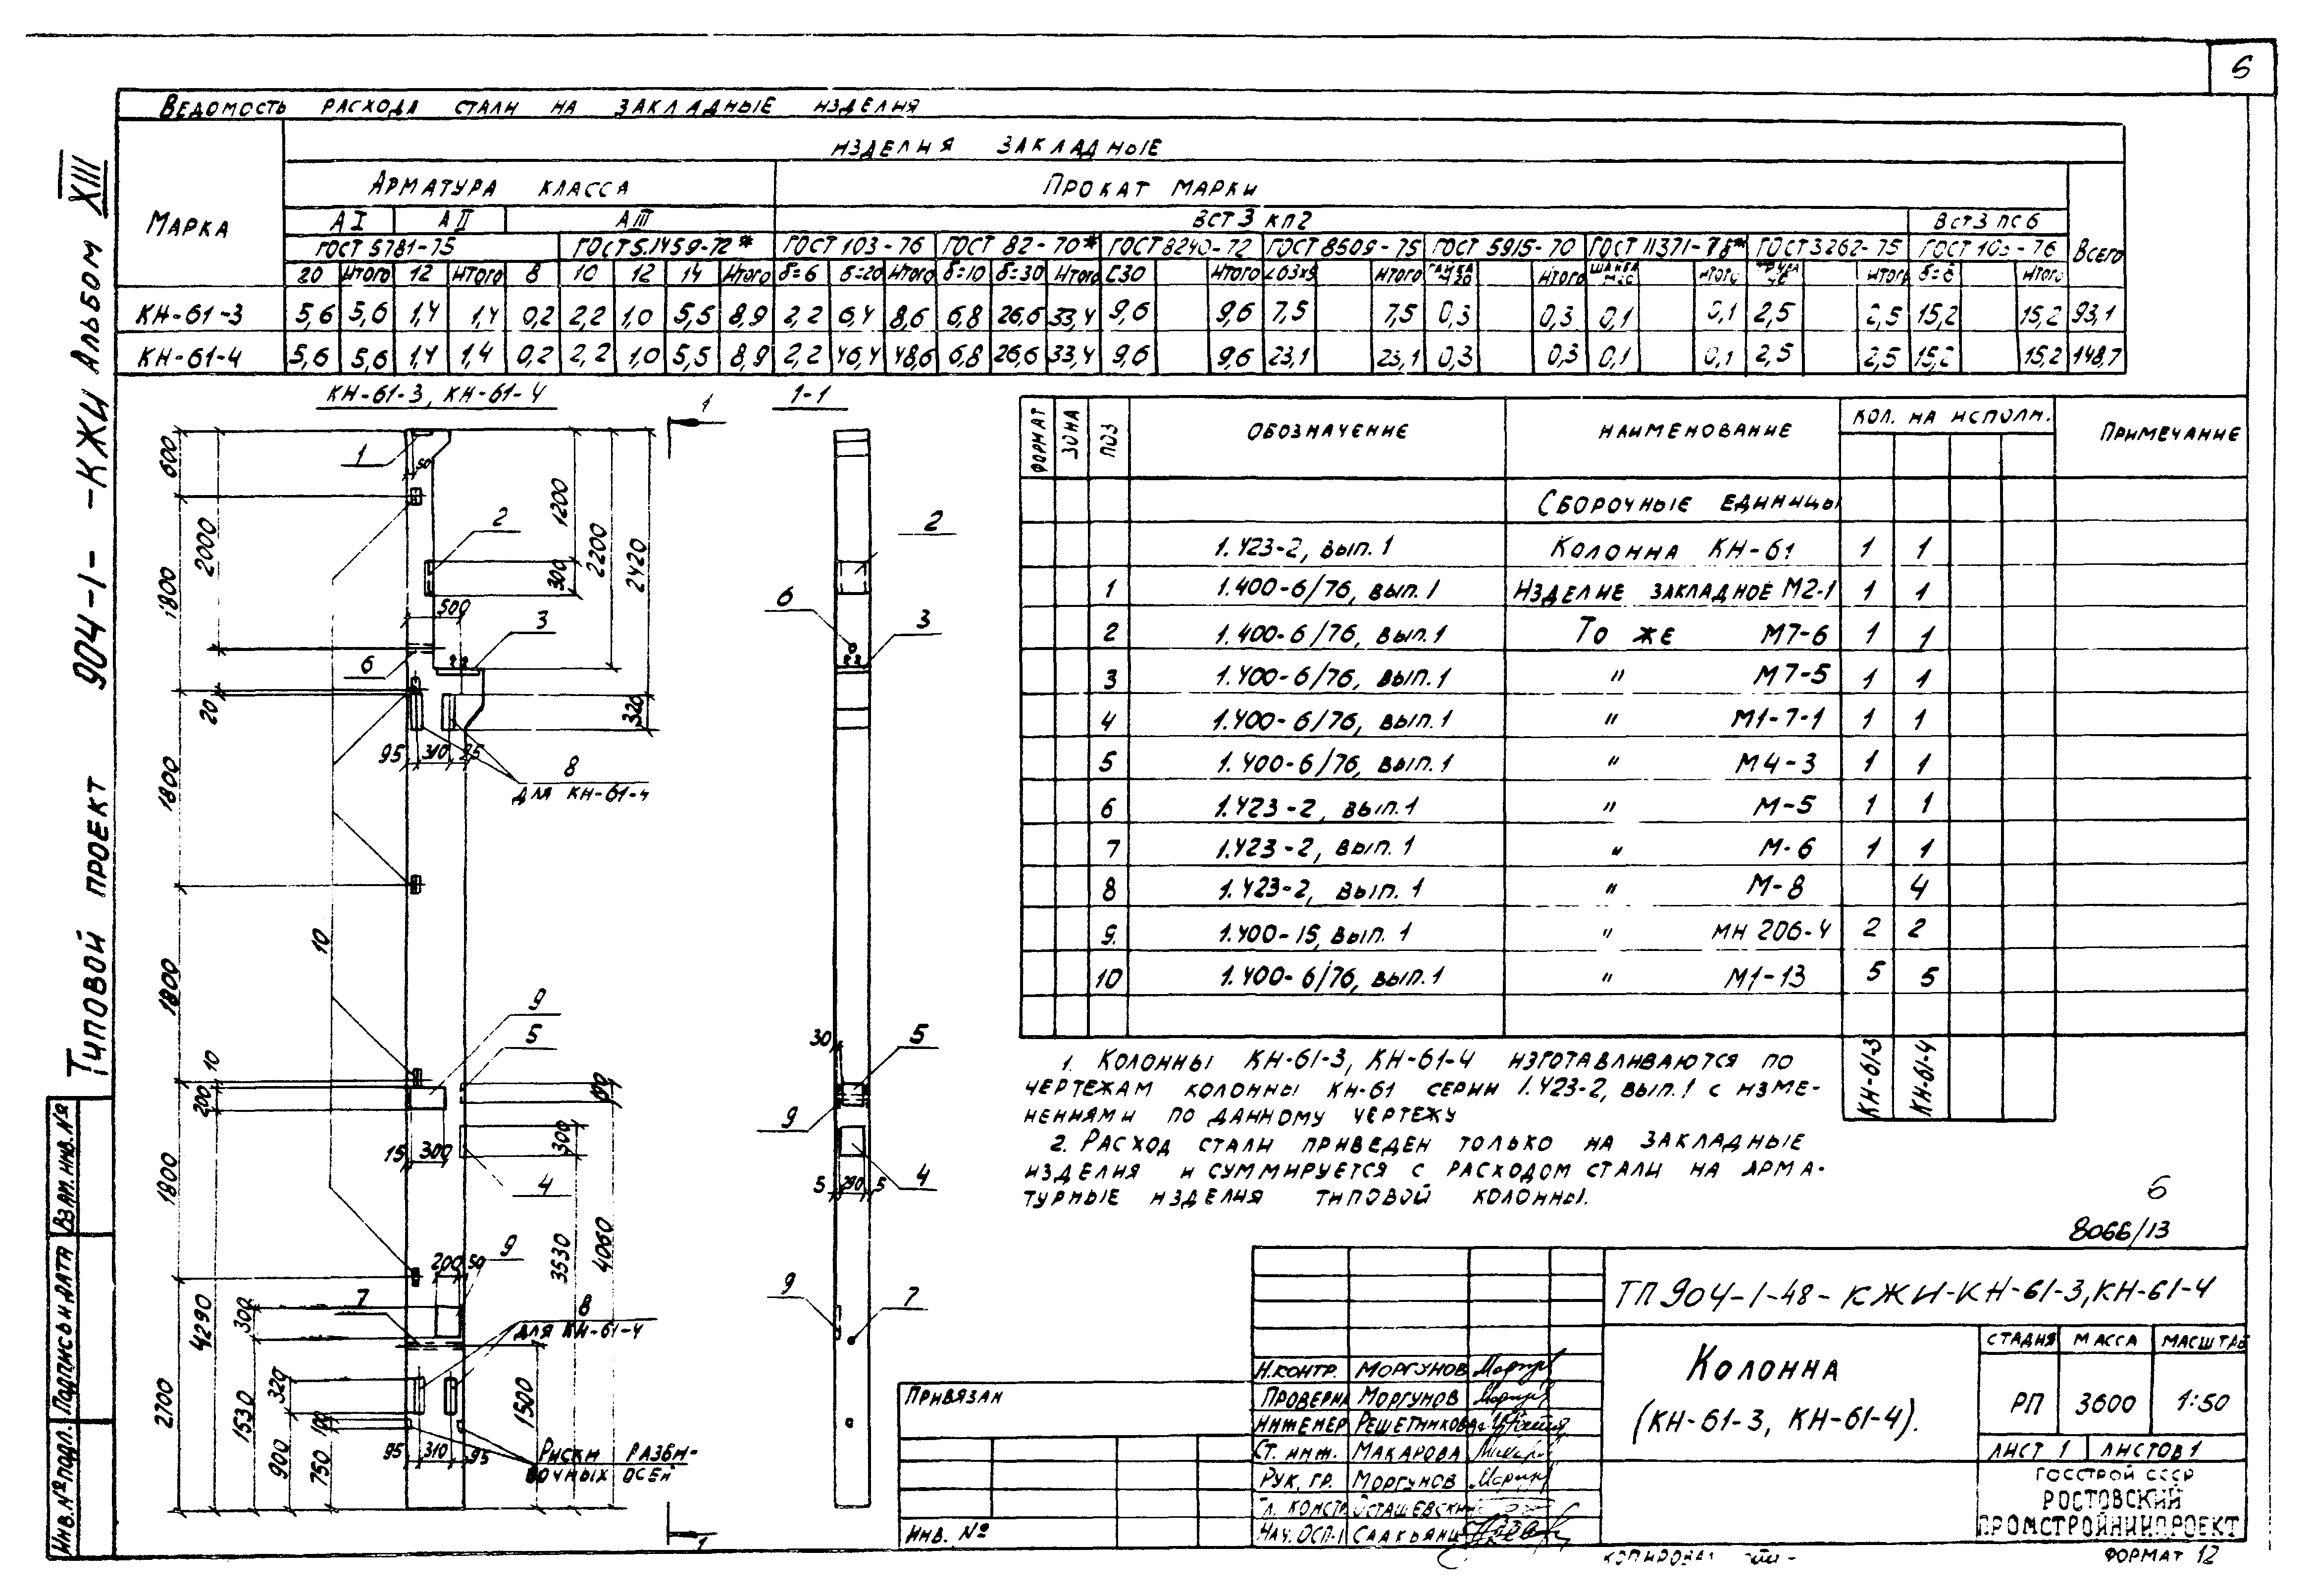 5
Ведомость расхода стали на закладные изделия
Марка
Изделия закладные
Арматура класса
Прокат марки
Всего
АI АII АIII ВСт3кп2 ВСт3пс6
ГОСТ 5781-75 ГОСТ 5.1459-72* ГОСТ 103-76 ГОСТ 82-70* ГОСТ 8240-72 ГОСТ 8509-75 ГОСТ 5915-70 ГОСТ 11371-78* ГОСТ 3262-75 ГОСТ 103-76
20 Итого 12 Итого 8 10 12 14 Итого δ=6 δ=20 Итого δ=10 δ=30 Итого С30 Итого Итого Итого Итого Итого Итого
КН-61-3 5,6 5,6 1,4 1,4 0,2 2,2 1,0 5,5 8,9 2,2 6,4 8,6 6,8 26,6 33,4 9,6 9,6 7,5 7,5 0,3 0,3 0,1 0,1 2,5 2,5 15,2 15,2 93,1
КН-61-4 5,6 5,6 1,4 1,4 0,2 2,2 1,0 5,5 8,9 2,2 46,4 48,6 6,8 26,6 33,4 9,6 9,6 23,1 23,1 0,3 0,3 0,1 0,1 2,5 2,5 15,2 15,2 148,7
Типовой проект 904-1- -КЖИ Альбом XIII
КН-61-3, КН-61-4
1-1
1
1
600
1800
1800
1800
1800
2700
2000
20
10
200
4290
1530
300
900
320
750
100
1
50
2
500
3
6
1200
300
2200
2420
320
95 310
8
для КН-61-4
10
9
5
15 300
4
100
300
3530
4060
200 50
9
7
8
для КН-61-4
1500
95 310 95
Риски разби-
вочных осей
2
6
3
30
5
9
4
5 290 5
9
7
Формат Зона Поз Обозначение Наименование Кол. на исполн. Примечание
Сборочные единицы
1.423-2, вып. 1 Колонна КН-61 1 1
1 1.400-6/76, вып. 1 Изделие закладное М2-1 1 1
2 1.400-6/76, вып. 1 То же М7-6 1 1
3 1.400-6/76, вып. 1 " М7-5 1 1
4 1.400-6/76, вып. 1 " М1-7-1 1 1
5 1.400-6/76, вып. 1 " М4-3 1 1
6 1.423-2, вып. 1 " М-5 1 1
7 1.423-2, вып. 1 " М-6 1 1
8 1.423-2, вып. 1 " М-8 4
9. 1.400-15, вып. 1 " МН 206-4 2 2
10 1.400-6/76, вып. 1 " М1-13 5 5
КН-61-3 КН-61-4
1. Колонны КН-61-3, КН-61-4 изготавливаются по
чертежам колонны КН-61 серии 1.423-2, вып. 1 с изме-
нениями по данному чертежу
2. Расход стали приведен только на закладные
изделия и суммируется с расходом стали на арма-
турные изделия типовой колонны.
6
8066/13
ТП 904-1-48-КЖИ-КН-61-3, КН-61-4
Колонна
(КН-61-3, КН-61-4).
Стадия Масса Масштаб
РП 3600 1:50
Лист 1 Листов 1
Госстрой СССР
Ростовский
Промстройниипроект
Н.контр. Моргунов
Проверил Моргунов
Инженер Решетникова
Ст. инж. Макарова
Рук. гр. Моргунов
Гл. констр. Осташевский
Нач. ОСП-1 Саакьянц
Привязан
Инв. №
Инв. № подл. Подпись и дата Взам. инв. №
Копировал
Формат 12